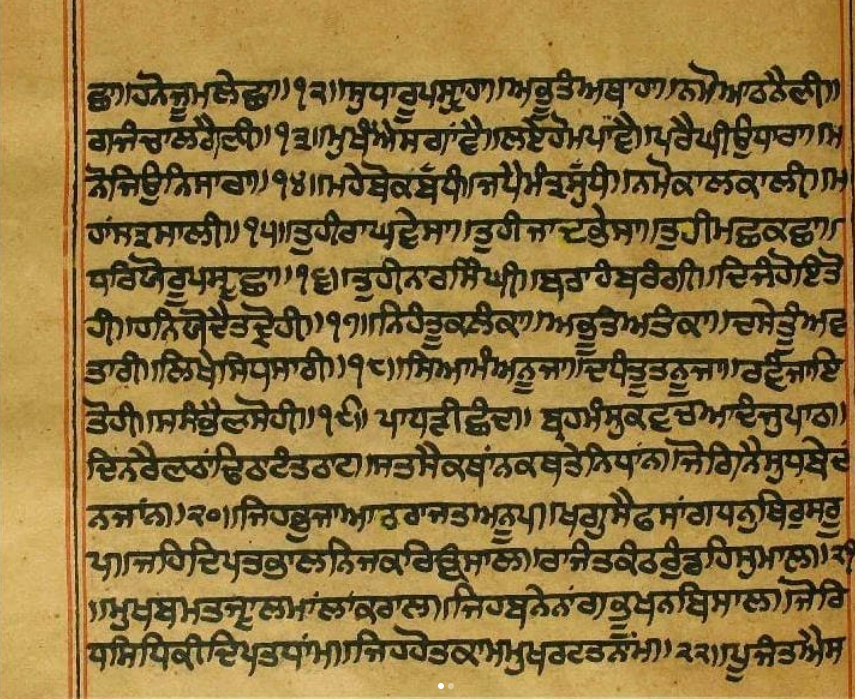 ਛਾ॥ਹਨੋਜੂਮਲੇਛਾ॥੧੨॥ਸੁਧਾਰੂਪਸ੍ਵਾਹਾ॥ਅਭੂਤੰਅਥਾਹਾ॥ਨਮੋਆਠਨੈਣੀ॥
ਗਜੰਚਾਲਗੈਣੀ॥੧੩॥ਮੁਖੰਐਸਗਾਂਵੈ॥ਲਏਹੋਮਪਾਂਵੈ॥ਪਰੈਘੀਉਧਾਰਾ॥ਮ
ਨੋਜਿਉਨਿਸਾਰਾ॥੧੪॥ਮਹੇਬੋਕਬੱਧੀ॥ਜਪੇਮੰਤ੍ਰਸੁੱਧੀ॥ਨਮੋਕਾਲਕਾਲੀ॥ਮ
ਹਾਂਸਤ੍ਰਸਾਲੀ॥੧੫॥ਤੁਹੀਰਾਘਵੇਸਾ॥ਤੁਹੀਜਾਦਵੇਸਾ॥ਤੁਹੀਮਛਕਛਾ॥
ਧਰਿਯੋਰੂਪਸ੍ਵਛਾ॥੧੬॥ਤੁਹੀਨਾਰਸਿੰਘੀ॥ਬਰਾਹੰਬਰੰਗੀ॥ਦਿਜੰਹੋਇਤੋ
ਹੀ॥ਹਨਿਯੋਦੈਤਦ੍ਰੋਹੀ॥੧੭॥ਨਿਹੰਤੂਕਲੰਕਾ॥ਅਭੂਤੰਅਤੰਕਾ॥ਦਸੇਤੂੰਅਵ
ਤਾਰੀ॥ਲਿਖੇਸਿਧਸਾਰੀ॥੧੮॥ਸਿਆਮੰਅਨੂਜਾ॥ਦਧੰਤੂਤਨੂਜਾ॥ਰਵੰਜਾਇ
ਤੋਹੀ॥ਸਸੰਭੈਣਸੋਹੀ॥੧੯॥ ਪਾਧੜੀਛੰਦਾ॥ ਬ੍ਰਹਮੰਸੁਕਵਚਆਦੰਜੁਪਾਠ॥
ਦਿਨਰੈਣਠਾਂਢਿਠਟੰਤਠਾਟ॥ਸਤਸੈਕਥਾਂਨਕਥਤੇਨਿਧਾਂਨ॥ਜੋਗਿਨੈਸੁਧਬੇਦ
ਨਜਾਂਨ॥੨੦॥ਜਿਹਭੁਜਾਆਠਰਾਜਤਅਨੂਪ॥ਖਗੁਸੈਫਸਾਂਗਧਨੁਥਿਰੁਸਰੂ
ਪ॥ਜਹਿਦਿਪਤਭਾਲਨਿਜਕਰਿਊਸਾਲ॥ਰਾਜੰਤਕੰਠਰੁੰਡਹਿਸੁਮਾਲ॥੨੧
॥ਮੁਖਬਮਤਜ੍ਵਾਲਮਾਂਲਾਂਕਰਾਲ॥ਜਿਹਬਨੇਨਾਂਗਭੂਖਨਬਿਸਾਲ॥ਜੋਰਿ
ਧਸਿਧਿਕੀਦਿਪਤਧਾਂਮ॥ਜਿਹਹੋਤਕਾਮਮੁਖਰਟਤਨਾਂਮ॥੨੨॥ਪੂਜੰਤਐਸ